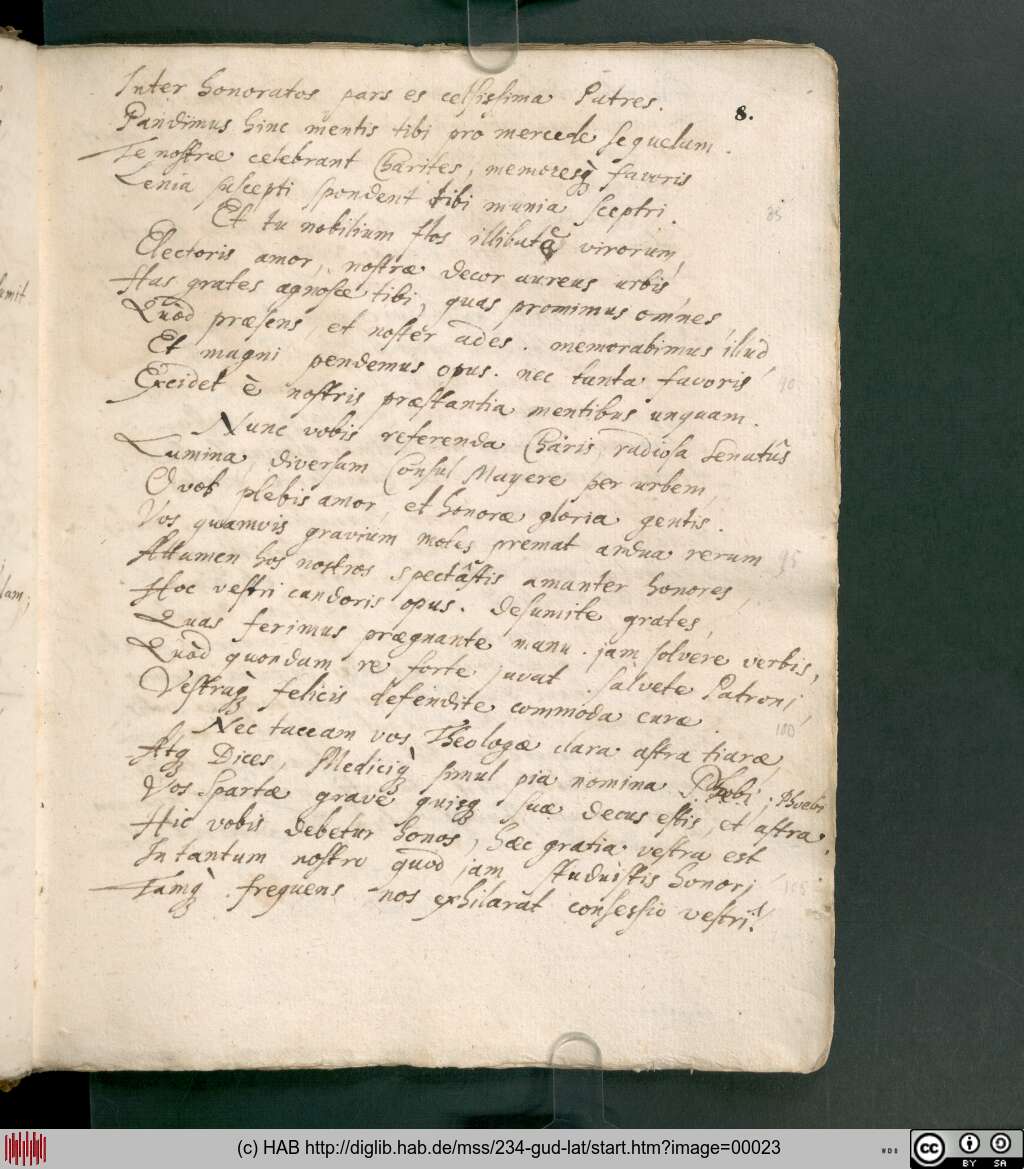 8.
Inter honoratos pars es celsissima Patres.
Pandimus hinc mentis tibi pro mercede sequelam.
Te nostræ celebrant Charites, memoresq̀ favoris
Lenia suscepti spondent tibi munia sceptri.
85
Et tu nobilium flos illibatæ virorum,
Electoris amor, nostræ decor aureus urbis
Has grates agnosce tibi, quas promimus omnes,
Quòd præsens, et noster ades. memorabimus illud,
Et magni pendemus opus. nec tanta favoris
90
Excidet è nostris præstantia mentibus unquam.
Nunc vobis referenda Charis, radiosa Senatûs
Lumina, diversam Consul Mayere per urbem,
O vos plebis amor, et honoræ gloria gentis.
Vos quamvis gravium moles premat ardua rerum
95
Attamen hos nostros spectâstis amanter honores,
Hoc vestri candoris opus. desumite grates,
Quas ferimus prægnante manu. jam solvere verbis,
Quòd quondam re forte juvat. salvete Patroni,
Vestraq̀ felicis defendite commoda curæ.
100
Nec taceam vos Theologæ clara astra tiaræ,
Atq Dices, Mediciq̀ simul pia nomina Phœbi; Phœbi
Vos Spartæ grave quisq suæ decus estis, et astra.
Hic vobis debetur honos, hæc gratia vestra est
In tantum nostro quòd jam studuistis honori
105
Tamq̀ frequens nos exhilarat consessio vestri.
umit
lam;
(c) HAB http://diglib.hab.de/mss/234-gud-lat/start.htm?image=00023
WDB
cc
BY SA